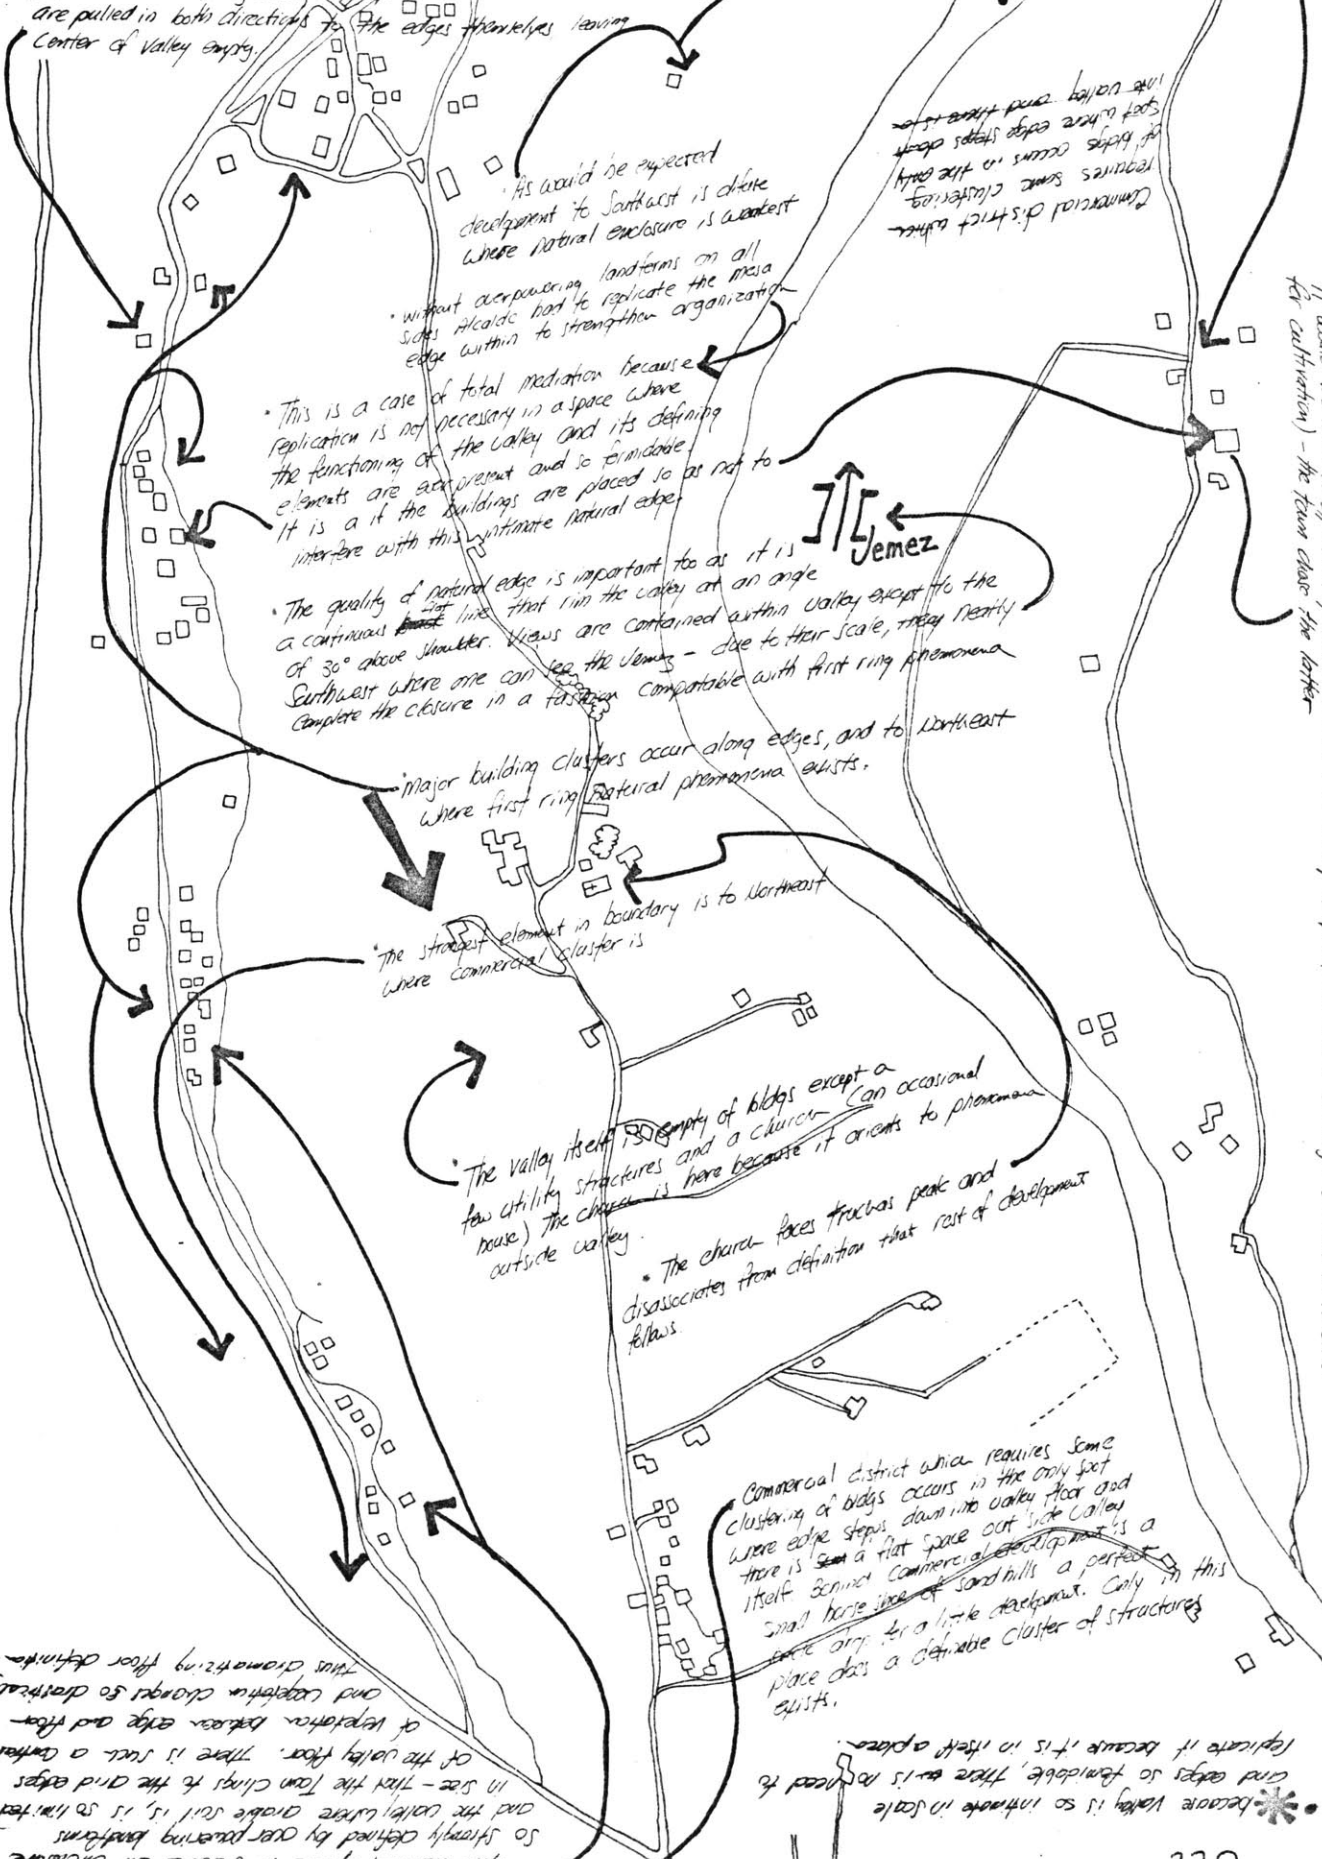 are pulled in both directions to the edges themselves leaving
Center of valley empty.
• As would be expected
development to Southwest is difuse
where natural enclosure is weakest
• without overpowering landforms on all
sides Alcalde had to replicate the mesa
edge within to strengthen organization
• This is a case of total mediation because
replication is not necessary in a space where
the functioning of the valley and its defining
elements are ever present and so formidable.
It is a if the buildings are placed so as not to
interfere with this intimate natural edge.
Jemez
• The quality of natural edge is important too as it is
a continuous flat line that rim the valley at an angle
of 30° above shoulder. Views are contained within valley except to the
Southwest where one can see the Jemez – due to their scale, they neatly
complete the closure in a fashion compatable with first ring phenomena
• Major building clusters occur along edges, and to Northeast
where first ring natural phenomena exists.
• The strongest element in boundary is to Northeast
where commercial cluster is
• The valley itself is empty of bldgs except a
few utility structures and a church (an occasional
house) The church is here because it orients to phenomena
outside valley.
• The church faces Truchas peak and
disassociates from definition that rest of development
follows.
Commercial district which requires some
clustering of bldgs occurs in the only spot
where edge steps down into valley floor and
there is a flat space out side valley
itself. Behind commercial development is a
small horse shoe of sandhills a perfect
for a little development. Only in this
place does a definable cluster of structures
exists.
Commercial district which
requires some clustering
of bldgs occurs in the only
spot where edge steps down
into valley and there is a
for cultivation) – the town chose the latter
• because valley is so intimate in scale
and edges so formidable, there is no need to
replicate it because it is in itself a place.
so strongly defined by over powering landforms
and the valley, where arable soil is, is so limited
in size – that the town clings to the arid edges
of the valley floor. There is such a
of vegetation between edge and floor
and vegetation changes so
thus dramatizing floor